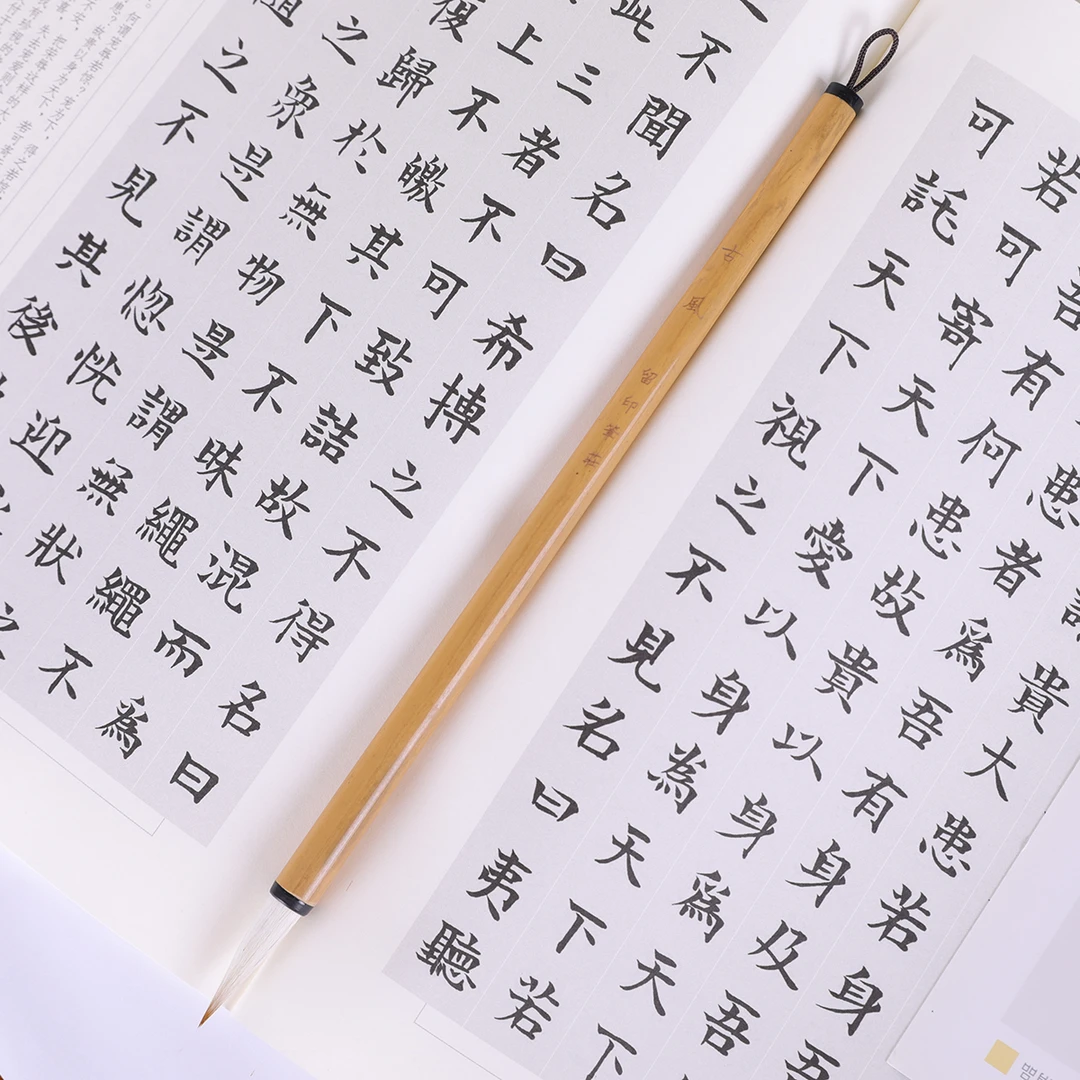 謂貴大患若身吾
患者為吾有身及吾
吾有何患故貴以身為天下
若可寄天下愛以身為天下若
可託天下視之不見名曰夷聽
古風
留印筆莊
之不聞名曰希搏之不得名曰
此三者不可致詰故混而為
上不皦其下不昧繩繩不
復歸於無物是謂無狀之
之衆是謂惚恍迎
之不見其後
何谓宠辱若惊?宠为下,得之若惊